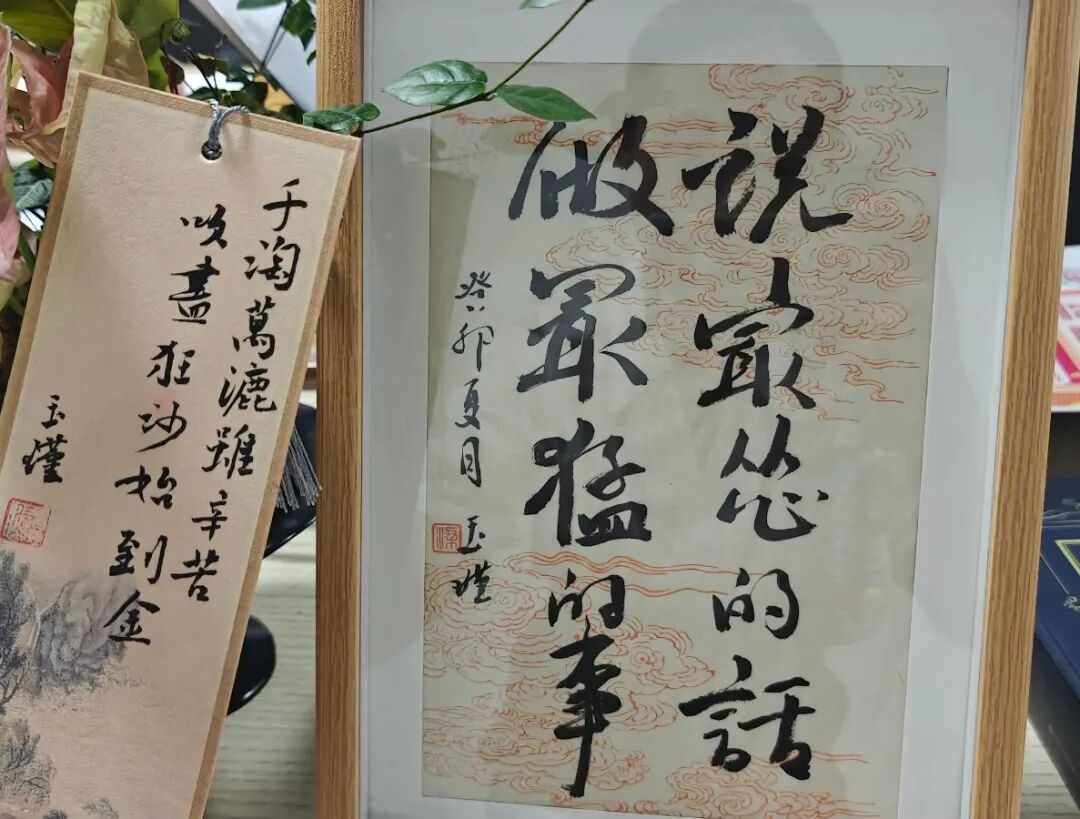 说最怂的話
做最猛的事
癸卯夏月 玉瑾
千淘萬漉雖辛苦
吹盡狂沙始到金
玉瑾